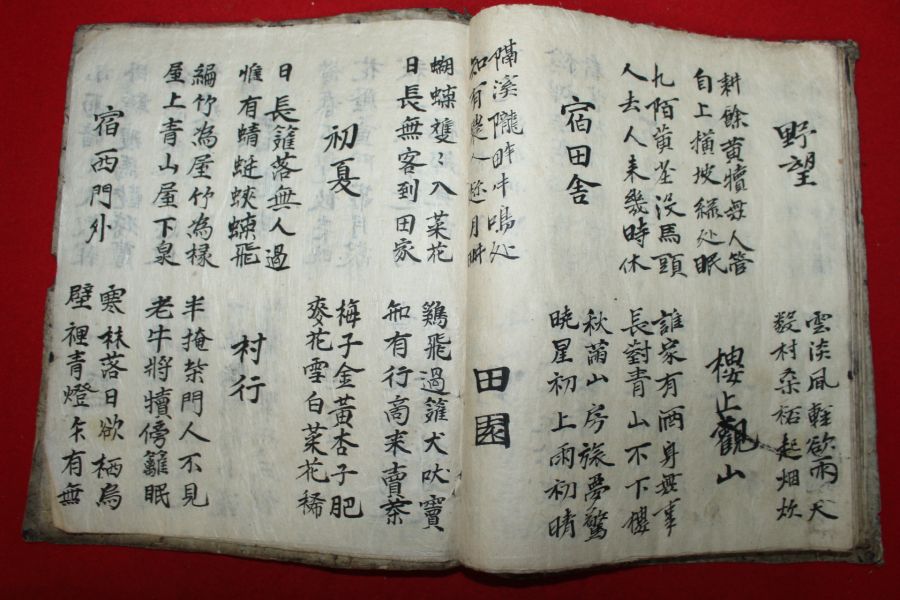 野望
雲淡風輕欲雨天
數村桑柘起烟炊
耕餘黃犢毋人管
自上橫坡綠处眠
樓上觀山
九陌黃塵沒馬頭
人去人來幾時休
誰家有酒身無事
長對青山不下樓
宿田舍
秋蕭山房旅夢驚
曉星初上雨初晴
隔溪隴畔牛鳴处
知有農人趁月畊
田園
蝴蝶雙〻入菜花
日長無客到田家
鷄飛過籬犬吠竇
知有行商來賣茶
初夏
梅子金黃杏子肥
麥花雪白菜花稀
日長籬落無人過
惟有蜻蜓蛺蝶飛
村行
編竹為屋竹為椽
屋上青山屋下泉
半掩柴門人不見
老牛將犢傍籬眠
宿西門外
寒林落日欲栖烏
壁裡青燈乍有無